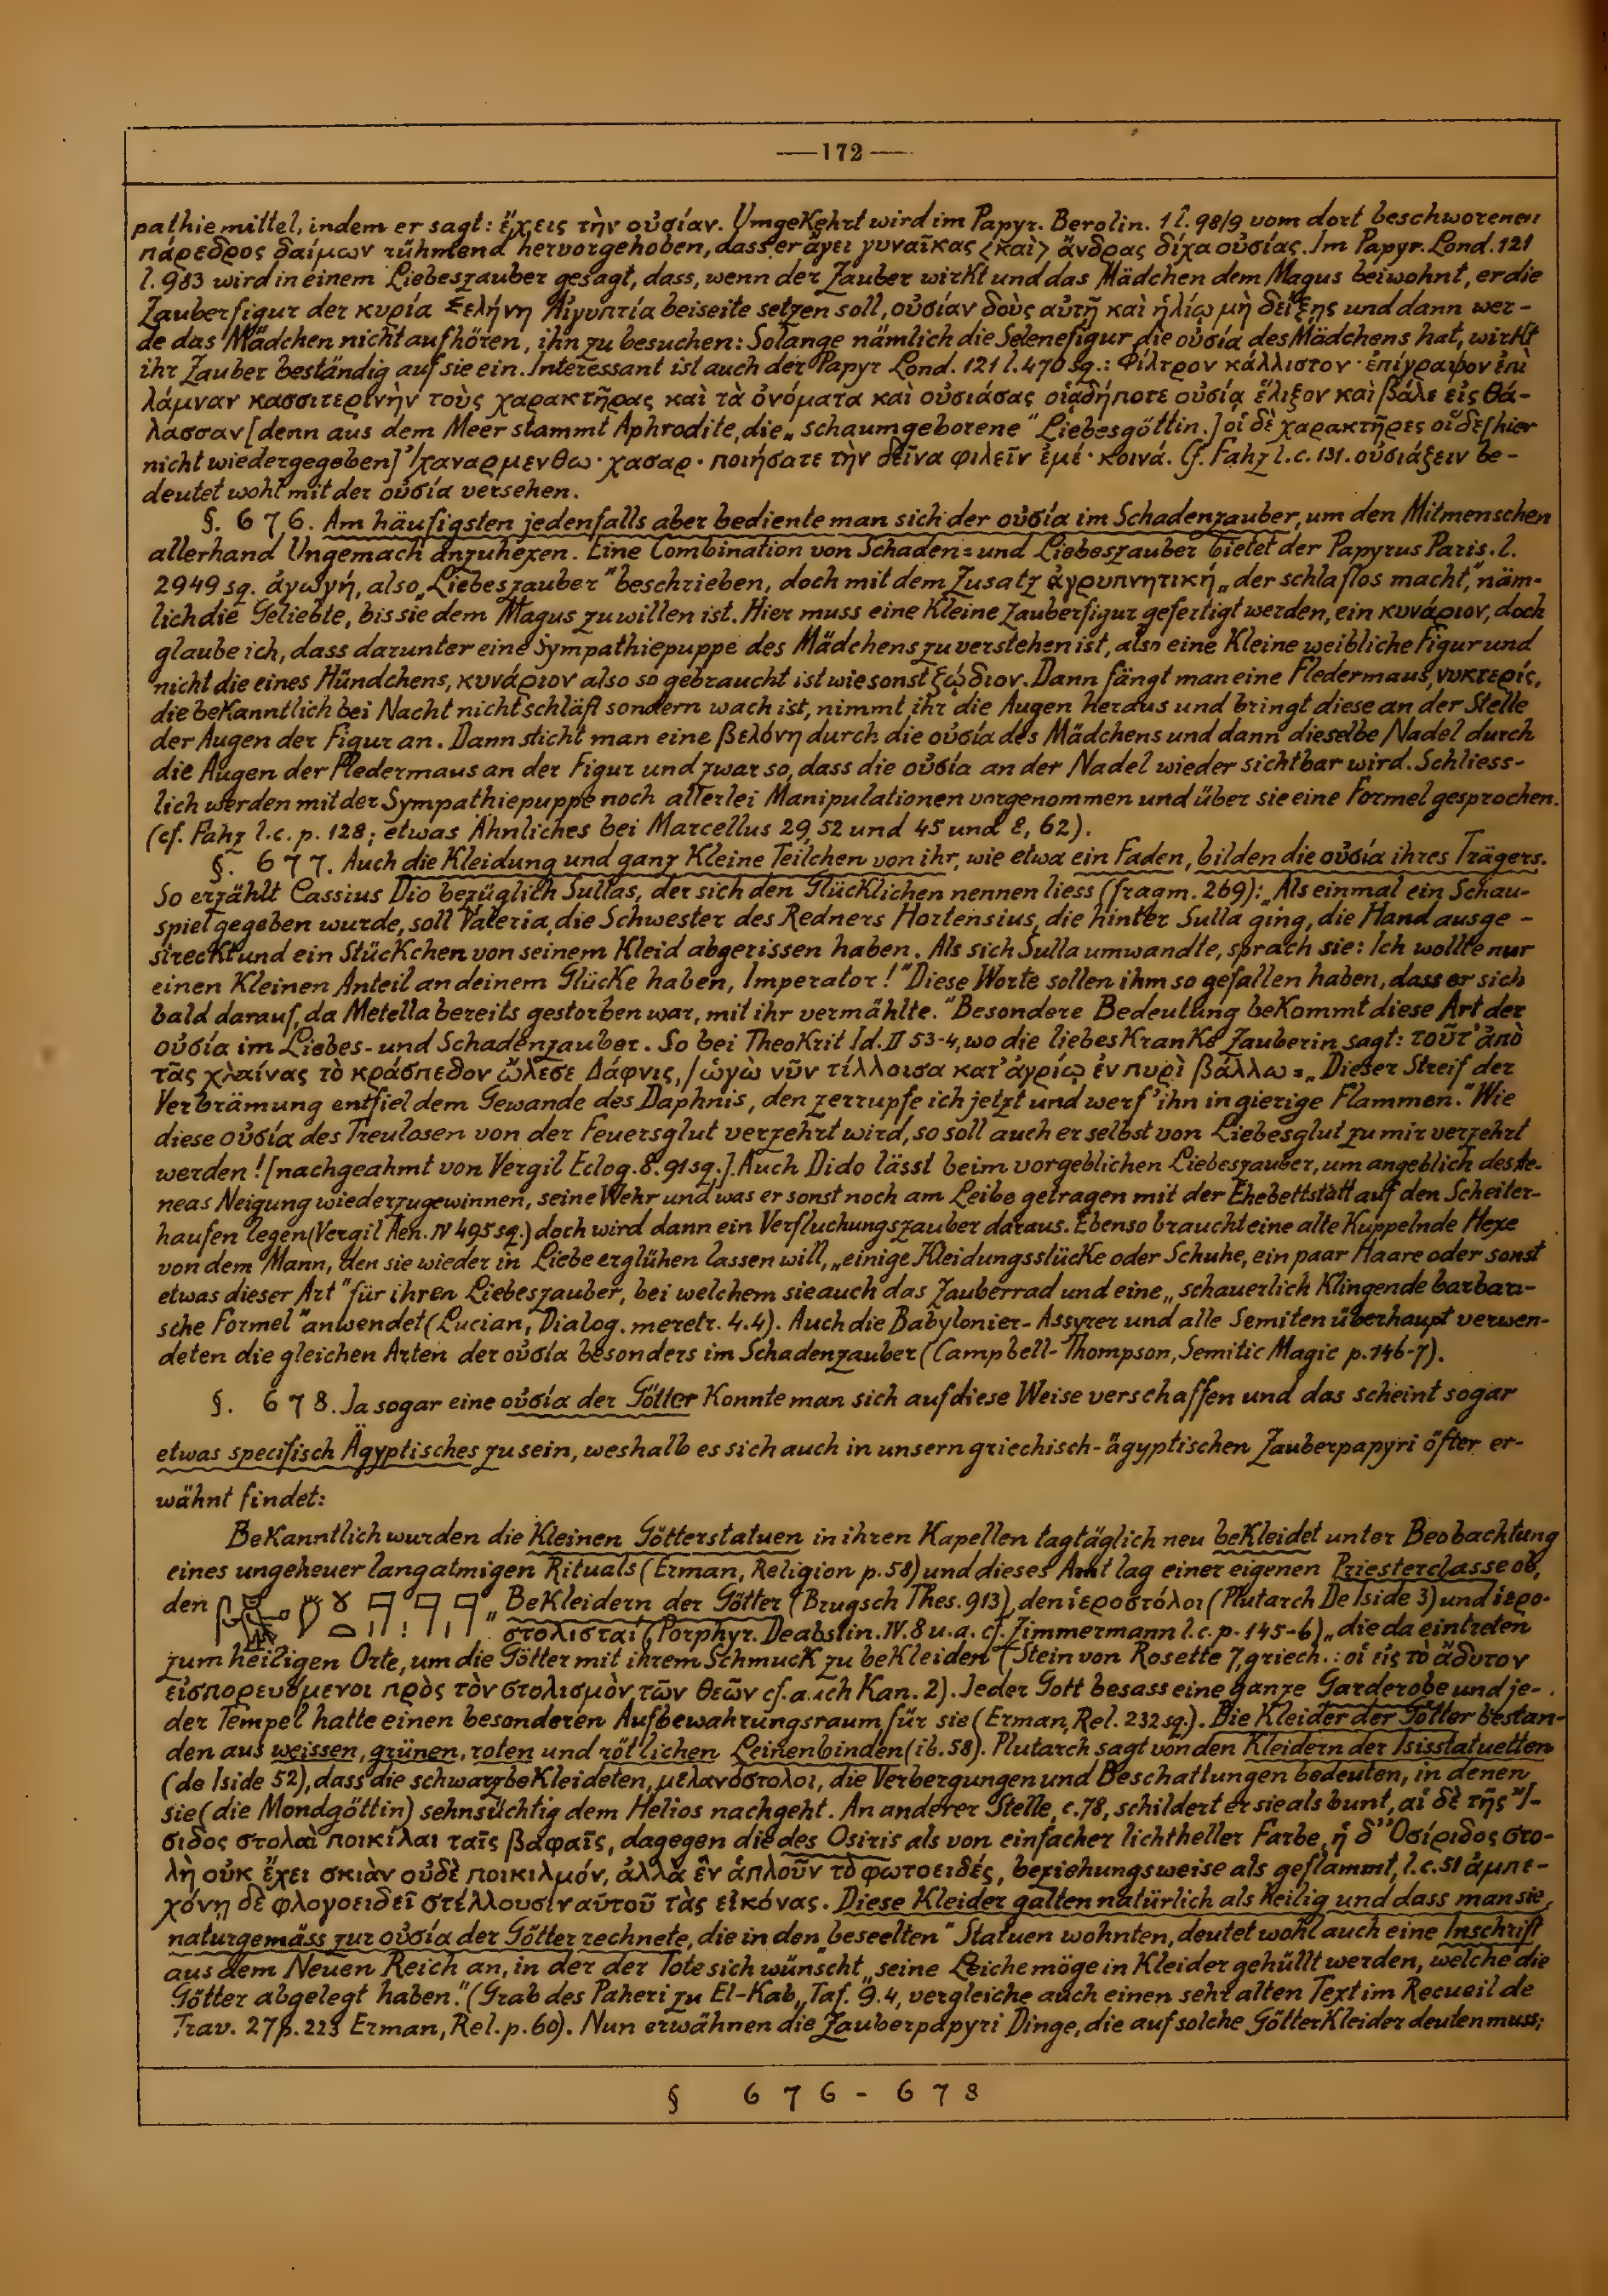 —172—
pathiemittel, indem er sagt: ἔχεις τὴν οὐσίαν. Umgekehrt wird im Papyr. Berolin. 1 l. 98/9 vom dort beschworenen
πάρεδρος δαίμων rühmend hervorgehoben, dass er ἄγει γυναῖκας <καὶ> ἄνδρας δίχα οὐσίας. Im Papyr. Lond. 121
l. 983 wird in einem Liebeszauber gesagt, dass, wenn der Zauber wirkt und das Mädchen dem Magus beiwohnt, er die
Zauberfigur der κυρία Σελήνη Αἰγυπτία beiseite setzen soll, οὐσίαν δοὺς αὐτῇ καὶ ἡλίῳ μὴ δείξῃς und dann wer-
de das Mädchen nicht aufhören, ihn zu besuchen: Solange nämlich die Selenefigur die οὐσία des Mädchens hat, wirkt
ihr Zauber beständig auf sie ein. Interessant ist auch der Papyr Lond. 121 l. 470 sq.: Φίλτρον κάλλιστον · ἐπίγραψον ἐπὶ
λάμναν κασσιτερίνὴν τοὺς χαρακτῆρας καὶ τὰ ὀνόματα καὶ οὐσιάσας οἱᾳδήποτε οὐσίᾳ ἕλιξον καὶ βάλε εἰς θά-
λασσαν [denn aus dem Meer stammt Aphrodite, die „schaumgeborene" Liebesgöttin.] οἱ δὲ χαρακτῆρες οἵδε [hier
nicht wiedergegeben] Ἰχαναρμενθω · χασαρ · ποιήσατε τὴν δεῖνα φιλεῖν ἐμέ · κοινά. Cf. Fahz l. c. 131. οὐσιάζειν be-
deutet wohl mit der οὐσία versehen.
§. 676. Am häufigsten jedenfalls aber bediente man sich der οὐσία im Schadenzauber, um den Mitmenschen
allerhand Ungemach anzuhexen. Eine Combination von Schaden= und Liebeszauber bietet der Papyrus Paris. l.
2949 sq. ἀγωγή, also „Liebeszauber" beschrieben, doch mit dem Zusatz ἀγρυπνητική „der schlaflos macht," näm-
lich die Geliebte, bis sie dem Magus zu willen ist. Hier muss eine kleine Zauberfigur gefertigt werden, ein κυνάριον, doch
glaube ich, dass darunter eine Sympathiepuppe des Mädchens zu verstehen ist, also eine kleine weibliche Figur und
nicht die eines Hündchens, κυνάριον also so gebraucht ist wie sonst ζῴδιον. Dann fängt man eine Fledermaus, νυκτερίς,
die bekanntlich bei Nacht nicht schläft sondern wach ist, nimmt ihr die Augen heraus und bringt diese an der Stelle
der Augen der Figur an. Dann sticht man eine βελόνη durch die οὐσία des Mädchens und dann dieselbe Nadel durch
die Augen der Fledermaus an der Figur und zwar so, dass die οὐσία an der Nadel wieder sichtbar wird. Schliess-
lich werden mit der Sympathiepuppe noch allerlei Manipulationen vorgenommen und über sie eine Formel gesprochen.
(cf. Fahz l. c. p. 128; etwas Ähnliches bei Marcellus 29, 52 und 45 und 8, 62).
§. 677. Auch die Kleidung und ganz kleine Teilchen von ihr, wie etwa ein Faden, bilden die οὐσία ihres Trägers.
So erzählt Cassius Dio bezüglich Sullas, der sich den Glücklichen nennen liess (fragm. 269): „Als einmal ein Schau-
spiel gegeben wurde, soll Valeria, die Schwester des Redners Hortensius, die hinter Sulla ging, die Hand ausge-
streckt und ein Stückchen von seinem Kleid abgerissen haben. Als sich Sulla umwandte, sprach sie: Ich wollte nur
einen kleinen Anteil an deinem Glücke haben, Imperator!" Diese Worte sollen ihm so gefallen haben, dass er sich
bald darauf, da Metella bereits gestorben war, mit ihr vermählte." Besondere Bedeutung bekommt diese Art der
οὐσία im Liebes- und Schadenzauber. So bei Theokrit Id. II 53-4, wo die liebeskranke Zauberin sagt: τοῦτ' ἀπὸ
τᾶς χλαίνας τὸ κράσπεδον ὤλεσε Δάφνις, / ὡγὼ νῦν τίλλοισα κατ' ἀγρίῳ ἐν πυρὶ βάλλω =„Dieser Streif der
Verbrämung entfiel dem Gewande des Daphnis, den zerrupfe ich jetzt und werf' ihn in gierige Flammen." Wie
diese οὐσία des Treulosen von der Feuersglut verzehrt wird, so soll auch er selbst von Liebesglut zu mir verzehrt
werden! [nachgeahmt von Vergil Eclog. 8. 91 sq.]. Auch Dido lässt beim vorgeblichen Liebeszauber, um angeblich des Ae-
neas Neigung wiederzugewinnen, seine Wehr und was er sonst noch am Leibe getragen mit der Ehebettstatt auf den Scheiter-
haufen legen (Vergil Aen. IV 495 sq.) doch wird dann ein Verfluchungszauber daraus. Ebenso braucht eine alte kuppelnde Hexe
von dem Mann, den sie wieder in Liebe erglühen lassen will, „einige Kleidungsstücke oder Schuhe, ein paar Haare oder sonst
etwas dieser Art" für ihren Liebeszauber, bei welchem sie auch das Zauberrad und eine „schauerlich klingende barbari-
sche Formel" anwendet (Lucian, Dialog. meretr. 4. 4). Auch die Babylonier-Assyrer und alle Semiten überhaupt verwen-
deten die gleichen Arten der οὐσία besonders im Schadenzauber (Campbell-Thompson, Semitic Magic p. 146-7).
§. 678. Ja sogar eine οὐσία der Götter konnte man sich auf diese Weise verschaffen und das scheint sogar
etwas specifisch Ägyptisches zu sein, weshalb es sich auch in unsern griechisch-ägyptischen Zauberpapyri öfter er-
wähnt findet:
Bekanntlich wurden die kleinen Götterstatuen in ihren Kapellen tagtäglich neu bekleidet unter Beobachtung
eines ungeheuer langatmigen Rituals (Erman, Religion p. 58) und dieses Amt lag einer eigenen Priesterclasse ob,
den „Bekleidern der Götter (Brugsch Thes. 913), den ἱεροστόλοι (Plutarch De Iside 3) und ἱερο-
στολισταί (Porphyr. De abstin. IV. 8 u. a. cf. Zimmermann l. c. p. 145-6) „die da eintreten
zum heiligen Orte, um die Götter mit ihrem Schmuck zu bekleiden (Stein von Rosette 7, griech.: οἱ εἰς τὸ ἄδυτον
εἰσπορευόμενοι πρὸς τὸν στολισμὸν τῶν θεῶν cf. auch Kan. 2). Jeder Gott besass eine ganze Garderobe und je-
der Tempel hatte einen besonderen Aufbewahrungsraum für sie (Erman, Rel. 232 sq.). Die Kleider der Götter bestan-
den aus weissen, grünen, roten und rötlichen Leinenbinden (ib. 58). Plutarch sagt von den Kleidern der Isisstatuetten
(de Iside 52), dass die schwarzbekleideten, μελανόστολοι, die Verbergungen und Beschattungen bedeuten, in denen
sie (die Mondgöttin) sehnsüchtig dem Helios nachgeht. An anderer Stelle, c. 78, schildert er sie als bunt, αἱ δὲ τῆς Ἴ-
σιδος στολαὶ ποικίλαι ταῖς βαφαῖς, dagegen die des Osiris als von einfacher lichtheller Farbe, ἡ δ' Ὀσίριδος στο-
λὴ οὐκ ἔχει σκιὰν οὐδὲ ποικιλμόν, ἀλλὰ ἓν ἁπλοῦν τὸ φωτοειδές, beziehungsweise als geflammt, l. c. 51 ἀμπε-
χόνῃ δὲ φλογοειδεῖ στέλλουσιν αὐτοῦ τὰς εἰκόνας. Diese Kleider galten natürlich als heilig und dass man sie
naturgemäss zur οὐσία der Götter rechnete, die in den „beseelten" Statuen wohnten, deutet wohl auch eine Inschrift
aus dem Neuen Reich an, in der der Tote sich wünscht „seine Leiche möge in Kleider gehüllt werden, welche die
Götter abgelegt haben." (Grab des Paheri zu El-Kab, Taf. 9. 4, vergleiche auch einen sehr alten Text im Recueil de
Trav. 27 p. 223 Erman, Rel. p. 60). Nun erwähnen die Zauberpapyri Dinge, die auf solche Götterkleider deuten muss;
§ 676-678